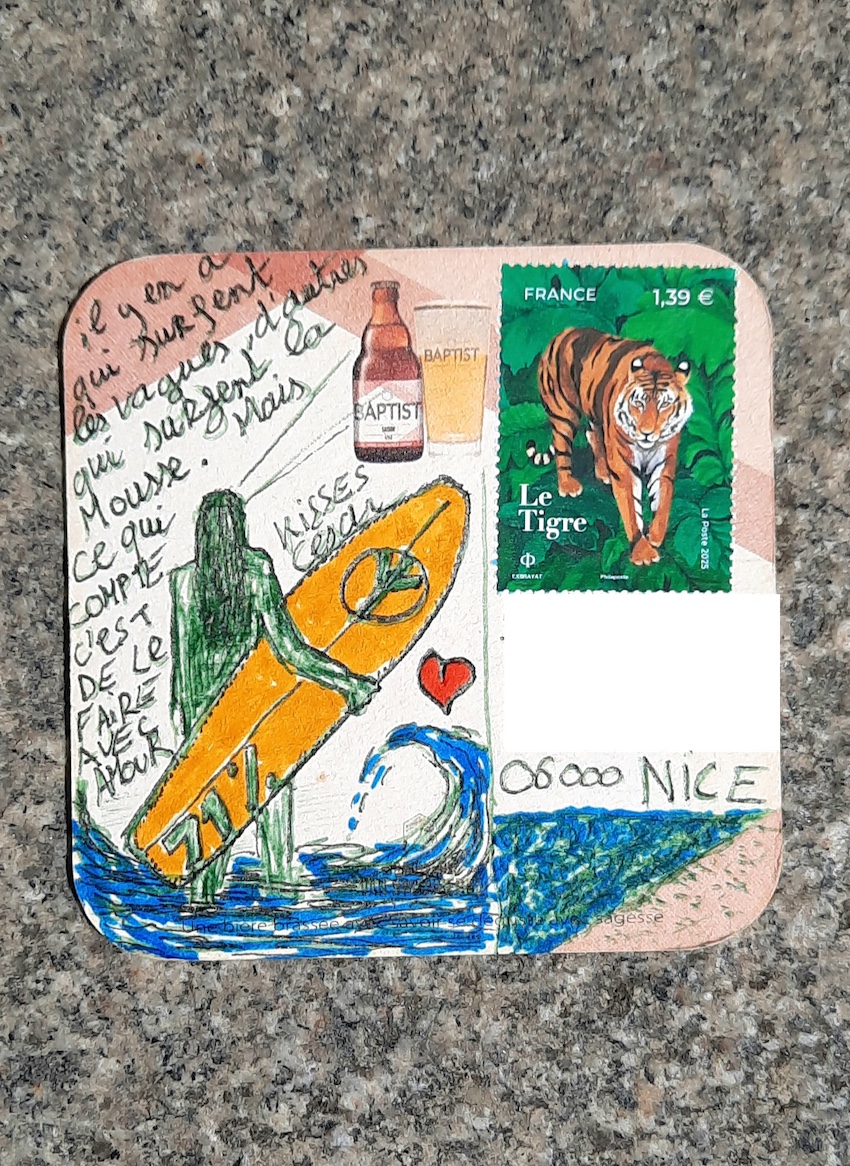 il y en a
qui surfent
les vagues, d'autres
qui surfent la
Mousse. Mais
ce qui
COMPTE
C'EST
DE LE
FAIRE
AVEC
AMOUR
KISSES
César
71%
BAPTIST
SAISON
BAPTIST
FRANCE 1,39 €
Le
Tigre
La Poste 2025
Philaposte
06000 NICE
Une bière brassée avec savoir se déguste avec sagesse